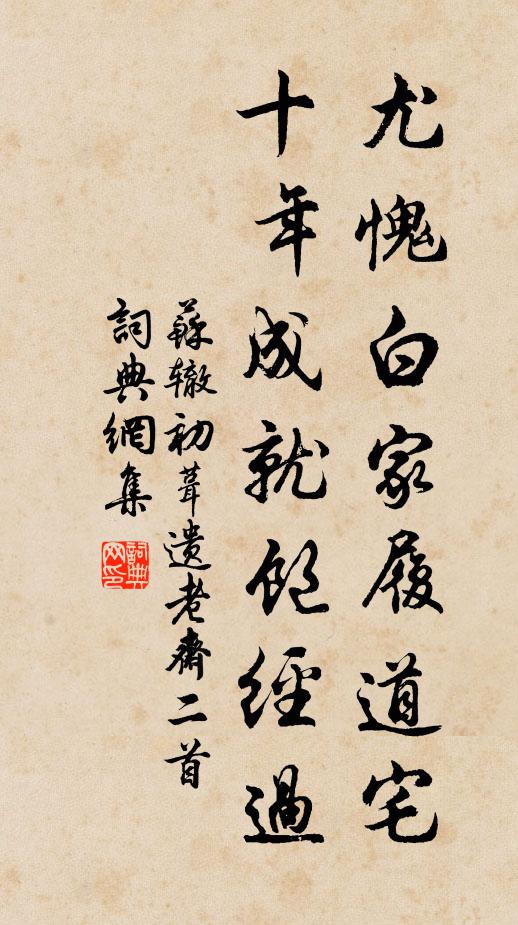 尤愧白家履道宅
十年成就飽經過
蘇辙初葺遗老齋二首
詞典網集
詞典网印